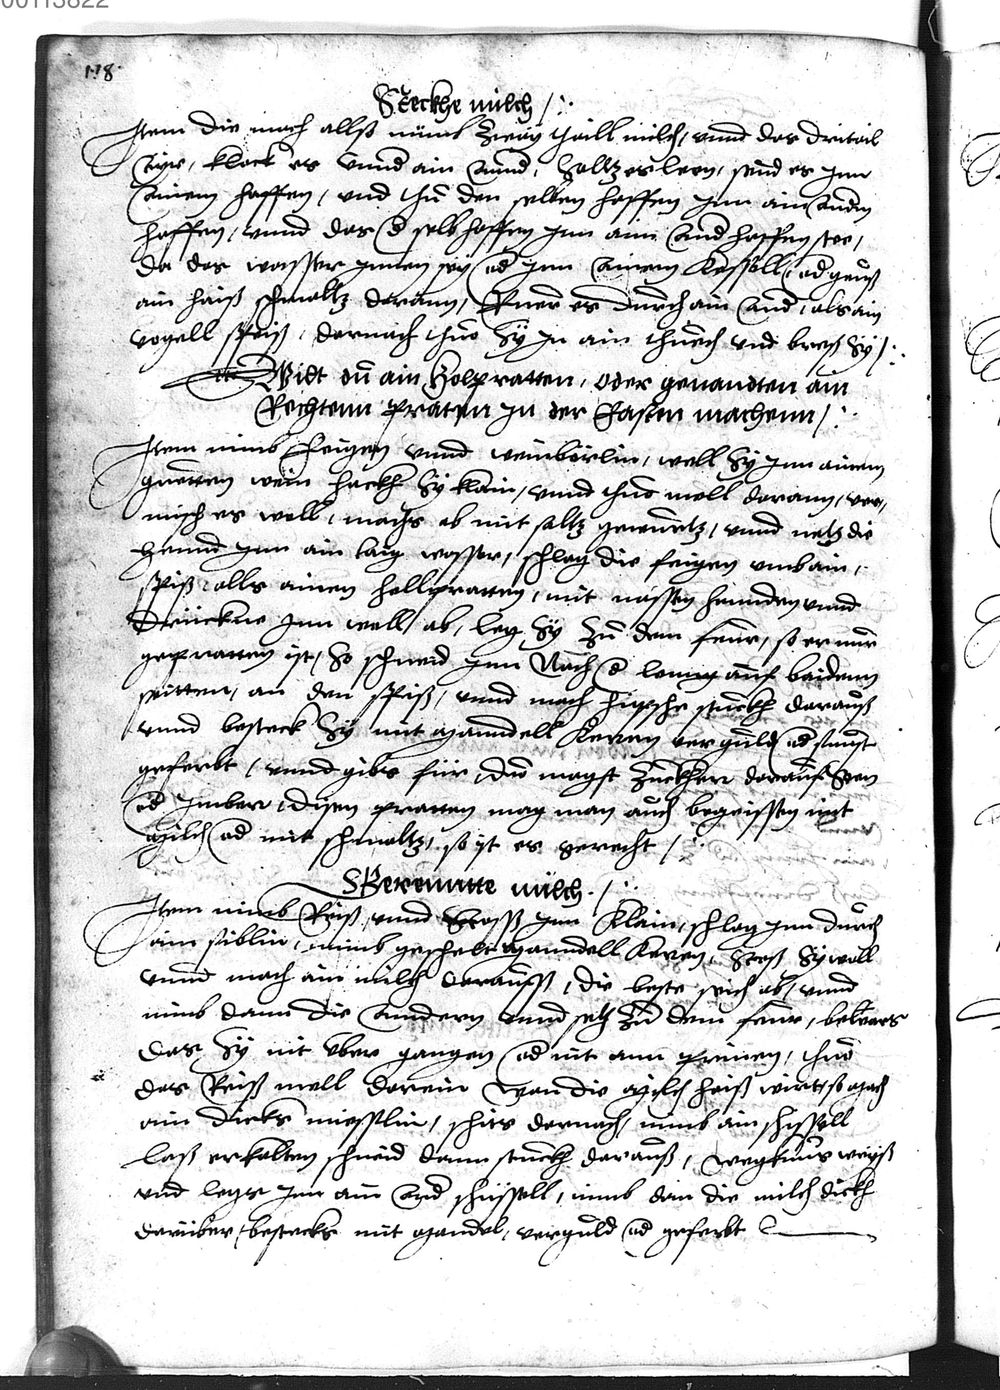 00113822
118
Steckhe milch /:
Item die mach allß nimb zway thaill milch, vnnd das drittail
Ayr, klock es vnnd ain annd, saltz es leren, seud es Jnn
ainem haffen, vnd thu den selben haffen Jnn ain andn
haffen, vnnd das d selb haffen Jnn aim annd haffen stee,
da das wasser Jnnen sey od Jnn ainem Kessell, od geuß
ain haiß schmaltz daran, Ruer es durch ain annd, als ain
vogell speiß, darnach thuo Sy Jn ain thuech vnd breß Sy /:
Wilt du ain Holpratten, oder genandten ain
Rechtenn praten Jn der Fasten machenn /:
Item nimb Feigen vnnd weinbörlin, well Sy Jnn ainem
guetten wein hackh Sy klain, vnnd thuo mell daran, ver,
misch es woll, machs ab mit saltz gewürtz, vnnd netz die
hennd Jnn ain laig wasser, schlag die feigen vmb ain,
spiß, alls ainen hollpratten, mit nassen hennden vnnd
Drückne Jnn woll ab, leg Sy Zu dem feur, so er nur
gepratten ist, So schneid Jnn Nach d leng auf baiden
seitten, an den spiß, vnnd mach hipsche stuckh darauß
vnnd besteck Sy mit manndell Keren vergüld od sunst
geferbt, vnnd gibs für, du magst Zuckher darauf Seen
od Jmber, disen pratten mag man auch begiessen mit
milch od mit schmaltz, so ist es gerecht /:
Gereennte milch /:
Item nimb Reiß, vnnd Stosß Jnn Klain, schlag Jnn durch
ain siblin, nimb geschelt manndell Keren, stoß Sy woll
vnnd mach ain milch darauß, die beste seich ab, vnnd
nimb dann die anndern vnnd setz Zu dem feur, bewars
das Sy nit über gangen od nit ann prinen, thuo
das Reiß mell darein wan die milch haiß wirt, so mach
ain dicks mueßlin, schits darnach, nimb ain schyssell
laß erkalten schneid dann stuckh darauß, weyß
vnd legs Jnn ain and schüssell, nimb dan die milch dickh
darüber, bestecks mit mandel, vergüld od geferbt